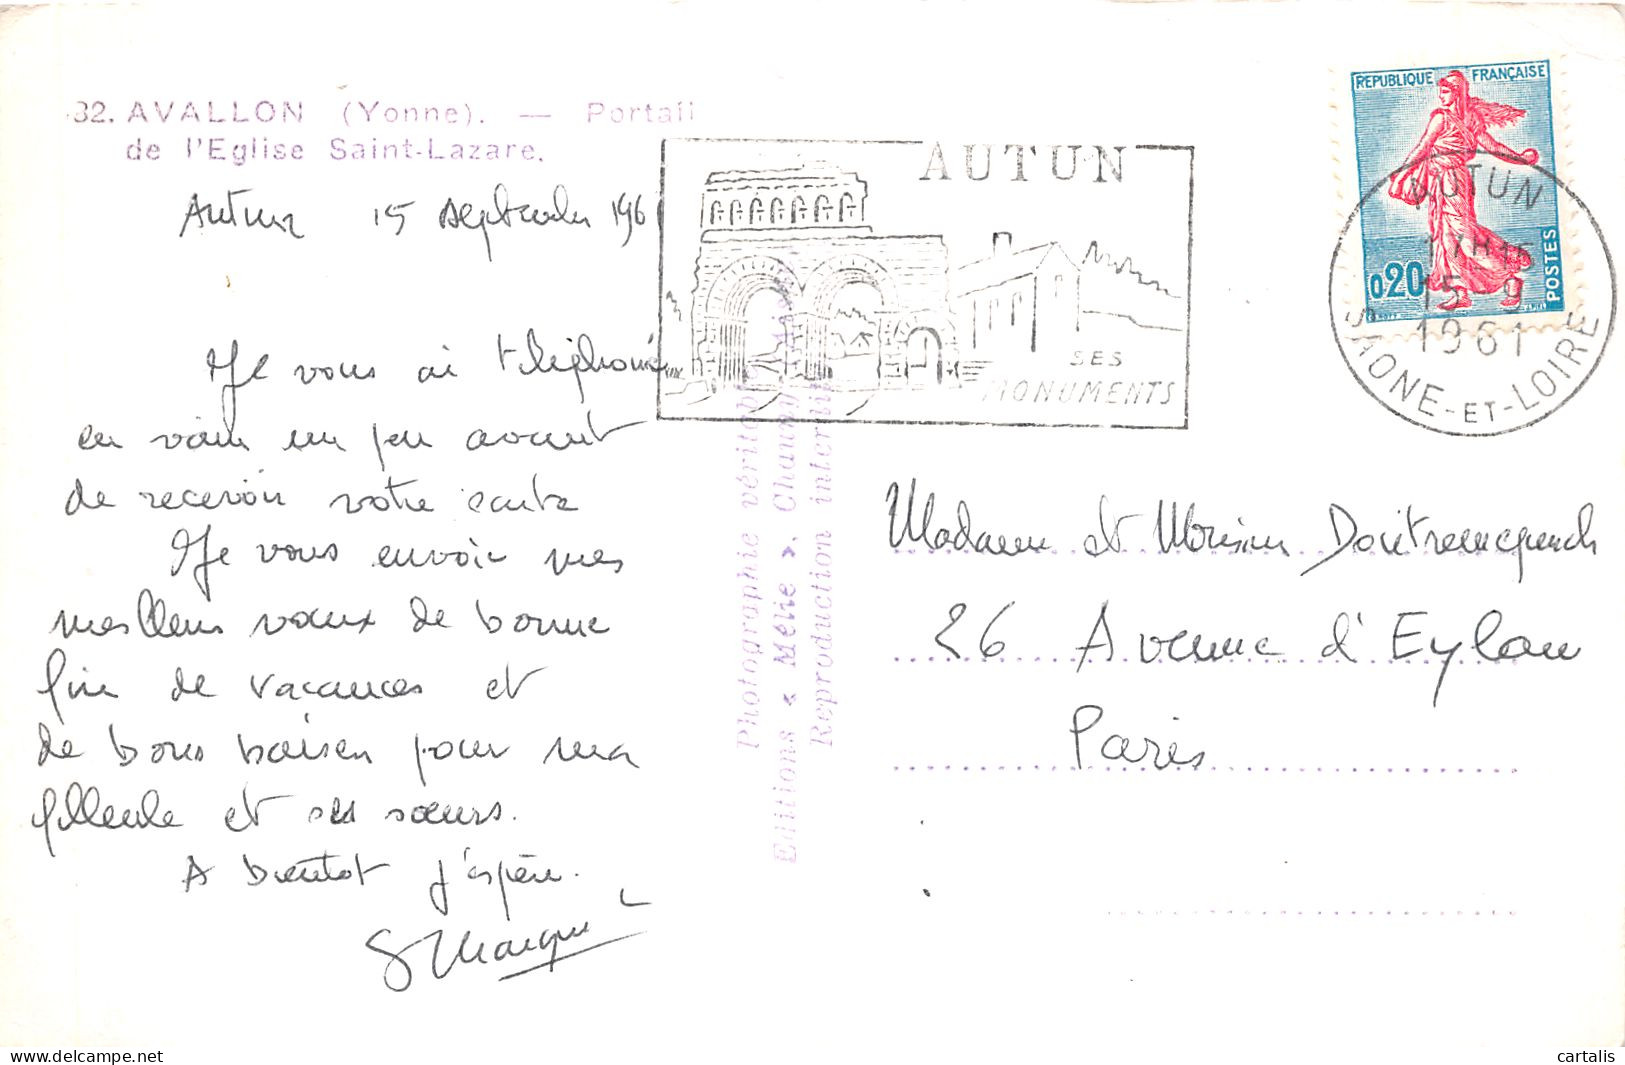 32. AVALLON (Yonne). — Portail
de l'Eglise Saint-Lazare.
Autun 15 septembre 196
Je vous ai téléphoné
en vain un peu avant
de recevoir votre carte
Je vous envoie mes
meilleurs vœux de bonne
fin de vacances et
de bons baisers pour ma
filleule et ses sœurs.
A bientot j'espère.
AUTUN
SES
MONUMENTS
REPUBLIQUE FRANÇAISE
0,20
POSTES
AUTUN
17H15
15-9
1961
SAONE-ET-LOIRE
Photographie véritable
Editions « Mélie ». Chauny
Reproduction interdite
Madame et Monsieur
26 Avenue d'Eylau
Paris
cartalis - delcampe.net